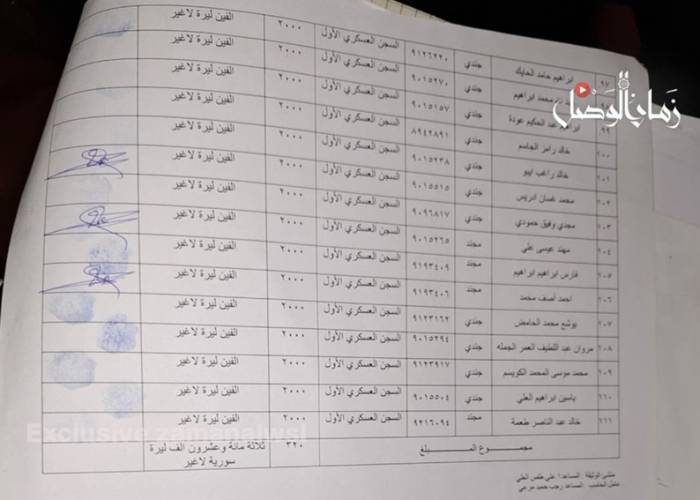 ٩٧ ابراهيم حامد الحايك جندي ٩١٢٦٢٢٠ السجن العسكري الأول ٢٠٠٠ الفين ليرة لاغير
محمد ابراهيم جندي ٩٠١٥٢٧٠ السجن العسكري الأول ٢٠٠٠ الفين ليرة لاغير
٩٩ عبد الحكيم عودة جندي ٩٠١٥١٥٧ السجن العسكري الأول ٢٠٠٠ الفين ليرة لاغير
١٠٠ خالد رامز الجاسم جندي ٨٩٤٢٨٩١ السجن العسكري الأول ٢٠٠٠ الفين ليرة لاغير
١٠١ خالد راغب ايبو جندي ٩٠١٥٢٣٨ السجن العسكري الأول ٢٠٠٠ الفين ليرة لاغير
١٠٢ محمد غسان ادريس جندي ٩٠١٥٥١٥ السجن العسكري الأول ٢٠٠٠ الفين ليرة لاغير
١٠٣ مجدي وفيق حمودي جندي ٩٠٩٦٨١٧ السجن العسكري الأول ٢٠٠٠ الفين ليرة لاغير
١٠٤ مهند عيسى علي مجند ٩٠١٥٢٦٥ السجن العسكري الأول ٢٠٠٠ الفين ليرة لاغير
١٠٥ فارس ابراهيم ابراهيم مجند ٩١٩٣٤٠٩ السجن العسكري الأول ٢٠٠٠ الفين ليرة لاغير
١٠٦ احمد آصف محمد مجند ٩١٩٣٤٠٦ السجن العسكري الأول ٢٠٠٠ الفين ليرة لاغير
١٠٧ يوشع محمد الحامض جندي ٩١٢٣١٦٢ السجن العسكري الأول ٢٠٠٠ الفين ليرة لاغير
١٠٨ مروان عبد اللطيف العمر الجمله جندي ٩٠١٥٢٩٤ السجن العسكري الأول ٢٠٠٠ الفين ليرة لاغير
١٠٩ محمد موسى المحمد الكويسم جندي ٩١٢٣٩١٧ السجن العسكري الأول ٢٠٠٠ الفين ليرة لاغير
١١٠ ياسين ابراهيم العلي جندي ٩٠١٥٥٠٤ السجن العسكري الأول ٢٠٠٠ الفين ليرة لاغير
١١١ خالد عبد الناصر طعمة مجند ٩٢١٦٠٩٤ السجن العسكري الأول ٢٠٠٠ الفين ليرة لاغير
مجموع المبلغ ٣٢٠ ثلاثة مائة وعشرون الف ليرة
سورية لاغير
منشئ الوثيقة : المساعد١ علي العلي
المساعد رجب حميد مرعي
زمان الوصل
Exclusive zamanalwsl